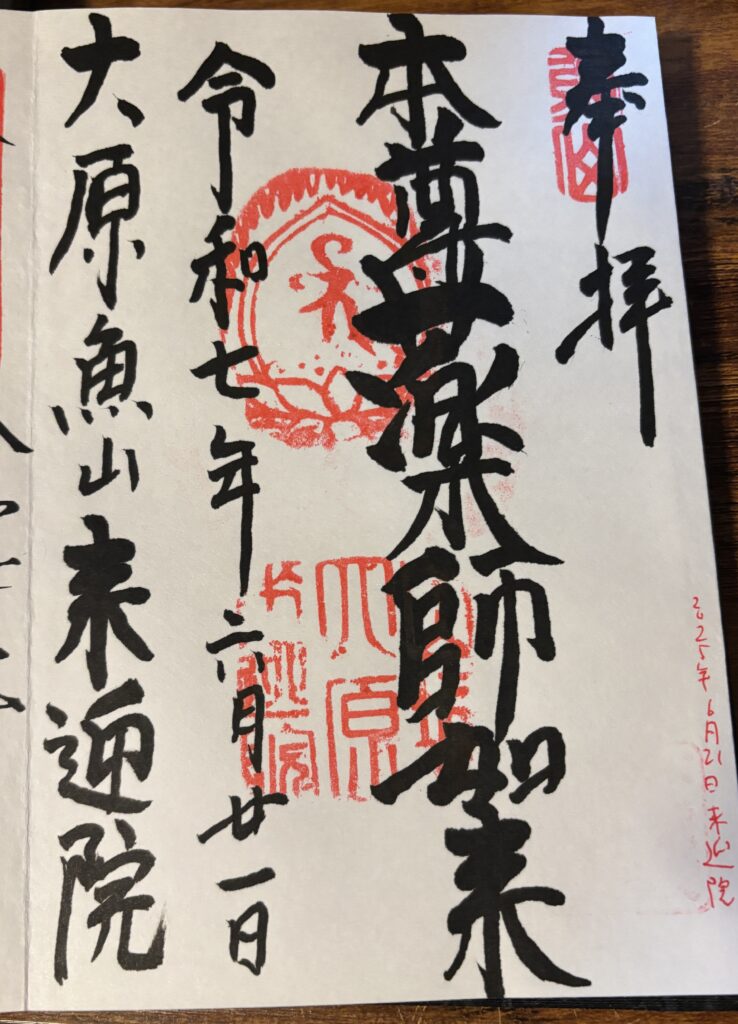 奉拝
本尊薬師如来
令和七年六月廿一日
大原魚山来迎院
2025年6月21日 来迎院
大原
来迎院